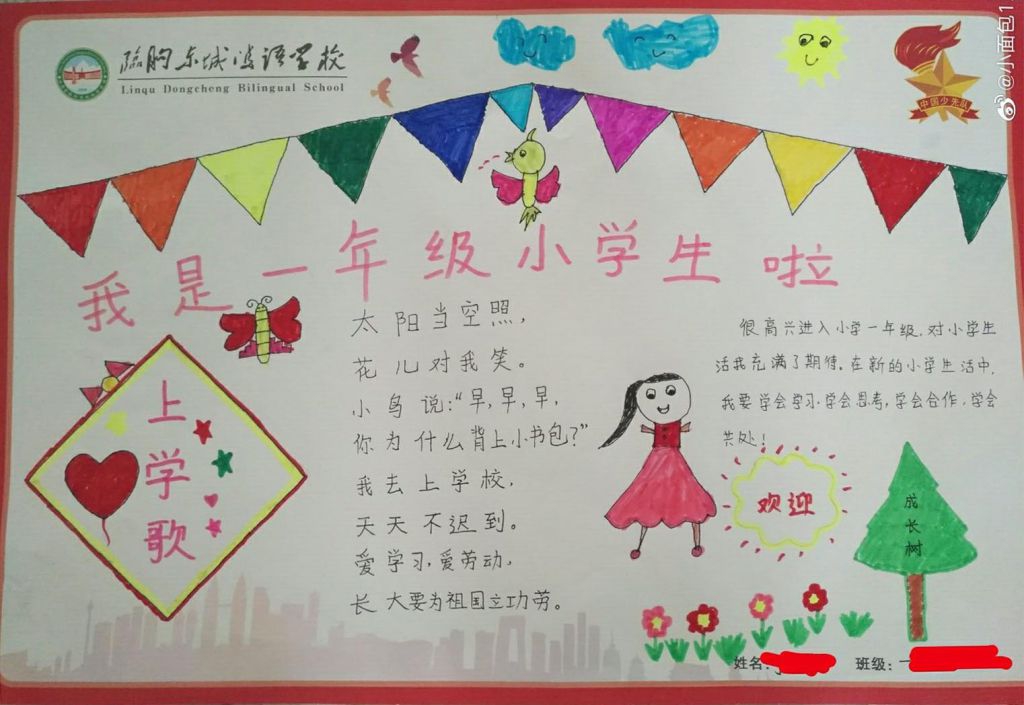 @小面包1
临朐东城双语学校
Linqu Dongcheng Bilingual School
中国少先队
我是一年级小学生啦
上学歌
太阳当空照,
花儿对我笑。
小鸟说:“早,早,早,
你为什么背上小书包?”
我去上学校,
天天不迟到。
爱学习,爱劳动,
长大要为祖国立功劳。
很高兴进入小学一年级,对小学生
活我充满了期待。在新的小学生活中,
我要学会学习、学会思考,学会合作、学会
共处!
欢迎
成长树
姓名:
班级:一